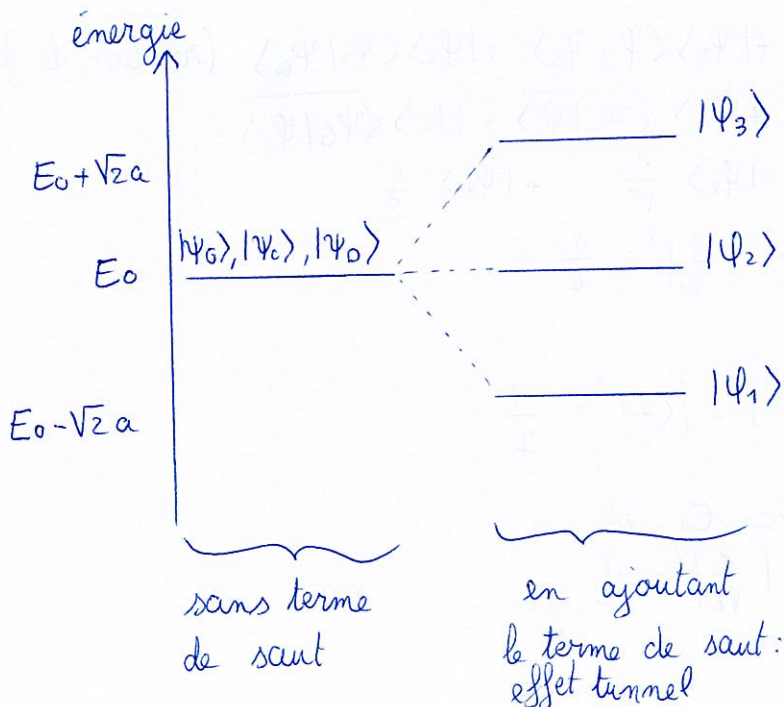 énergie
E₀+√2a
|φ₃⟩
|ψ_G⟩, |ψ_C⟩, |ψ_D⟩
E₀
|φ₂⟩
E₀-√2a
|φ₁⟩
sans terme
de saut
en ajoutant
le terme de saut :
effet tunnel